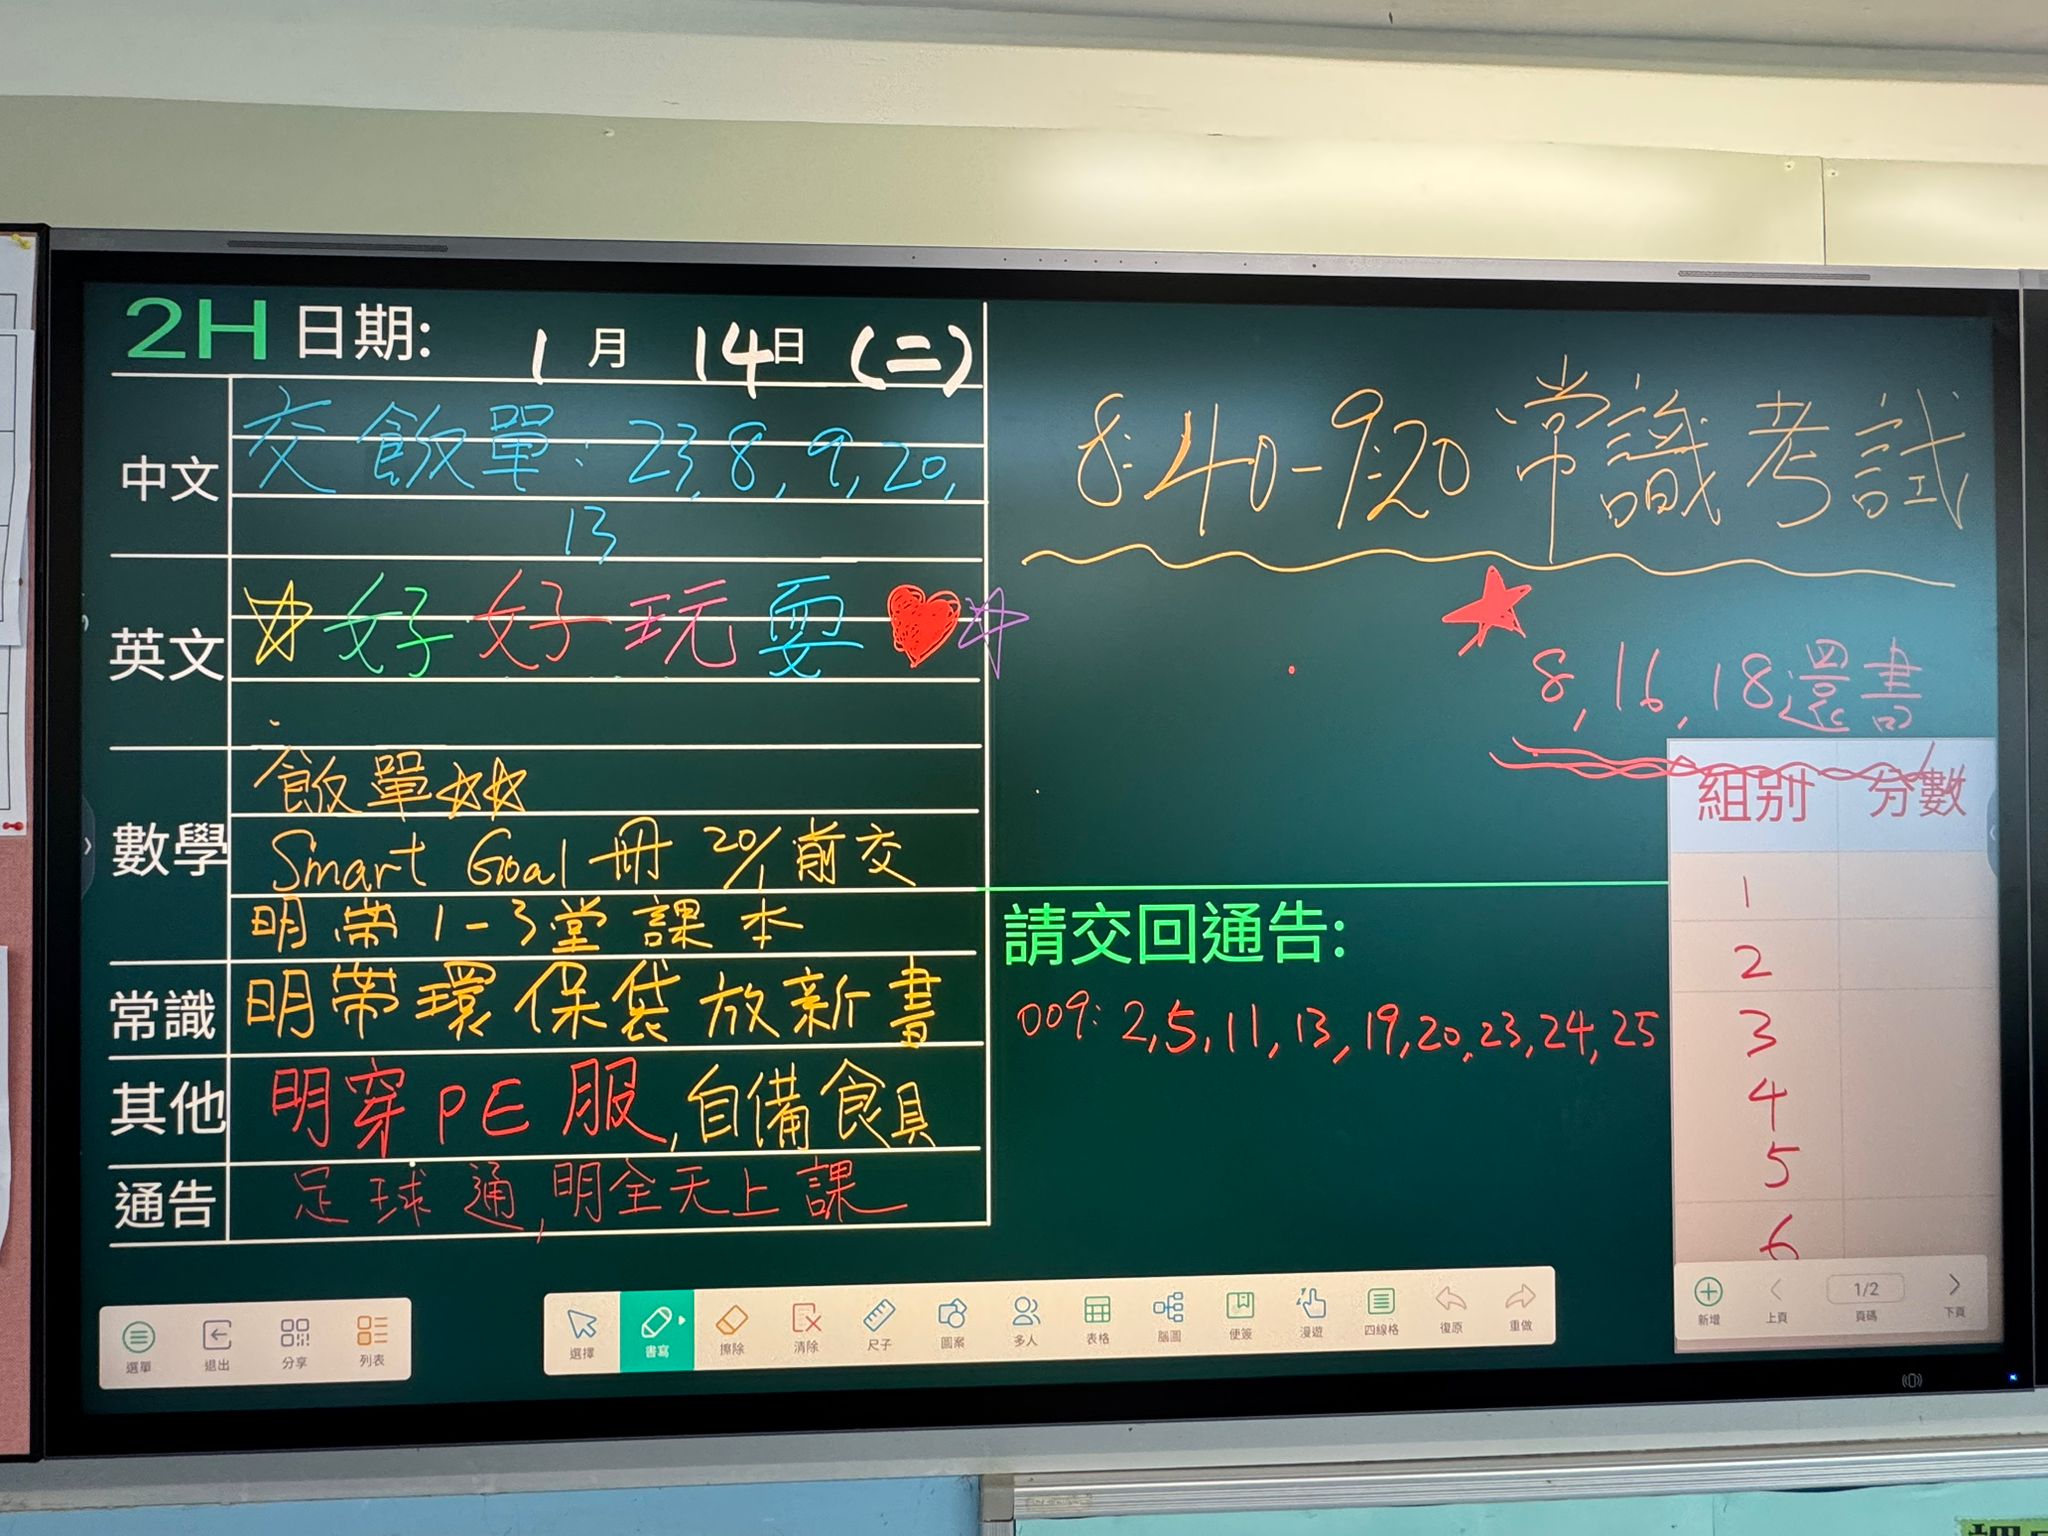 2H 日期: 1 月 14日 (二)
中文
交飯單: 23, 8, 9, 20,
13
英文
好好玩耍
數學
飯單
Smart Goal 冊 20/1 前交
明帶 1-3堂課本
常識
明帶環保袋放新書
其他
明穿PE服, 自備食具
通告
足球通, 明全天上課
8:40-9:20 常識考試
8, 16, 18還書
請交回通告:
009: 2, 5, 11, 13, 19, 20, 23, 24, 25
組別 分數
1
2
3
4
5
6
選單 退出 分享 列表
選擇 書寫 擦除 清除 尺子 圖案 多人 表格 腦圖 便簽 漫遊 四線格 復原 重做
新增 上頁 1/2 頁碼 下頁